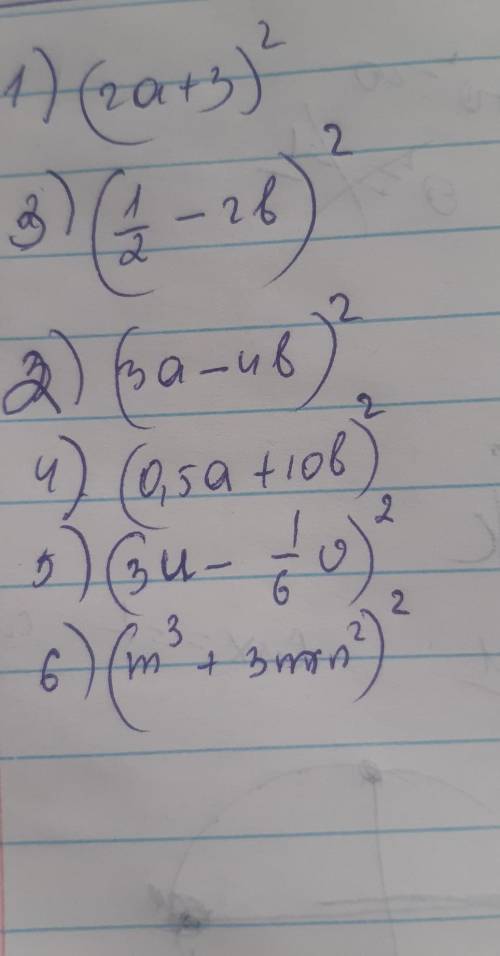 1) (2a+3)²
3) (1/2 − 2b)²
2) (3a−4b)²
4) (0,5a+10b)²
5) (3u − 1/6 v)²
6) (m³ + 3mn²)²